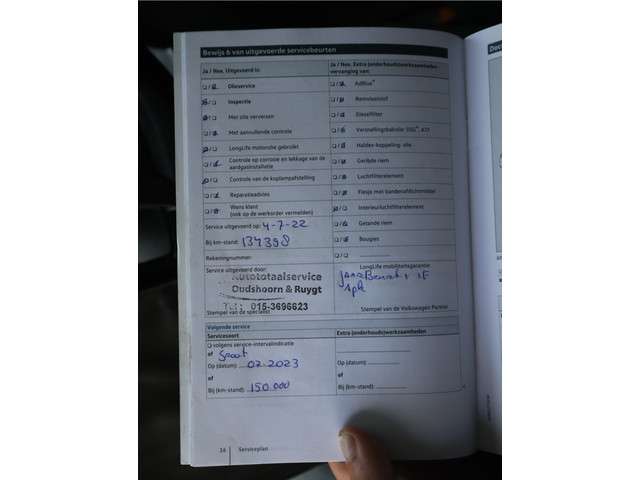 Bewijs 6 van uitgevoerde servicebeurten
Ja / Nee, Uitgevoerd is:
Olieservice
Inspectie
Met olie verversen
Met aanvullende controle
LongLife motorolie gebruikt
Controle op corrosie en lekkage van de aardgasinstallatie
Controle van de koplampafstelling
Reparatieadvies
Wens klant
(ook op de werkorder vermelden)
Service uitgevoerd op: 4-7-22
Bij km-stand: 134398
Rekeningnummer:
Service uitgevoerd door:
Autototaalservice
Oudshoorn & Ruygt
Tel: 015-3696623
Stempel van de specialist
Ja / Nee, Extra (onderhouds)werkzaamheden
vervanging van:
AdBlue®
Remvloeistof
Dieselfilter
Versnellingsbakolie DSG®, ATF
Haldex-koppeling: olie
Geribde riem
Luchtfilterelement
Flesje met bandenafdichtmiddel
Interieurluchtfilterelement
Getande riem
Bougies
LongLife mobiliteitsgarantie
Stempel van de Volkswagen Partner
Volgende service
Servicesoort
volgens service-intervalindicatie
of
Op (datum): 07-2023
of
Bij (km-stand): 150.000
Extra (onderhouds)werkzaamheden
Op (datum):
of
Bij (km-stand):
16
Serviceplan